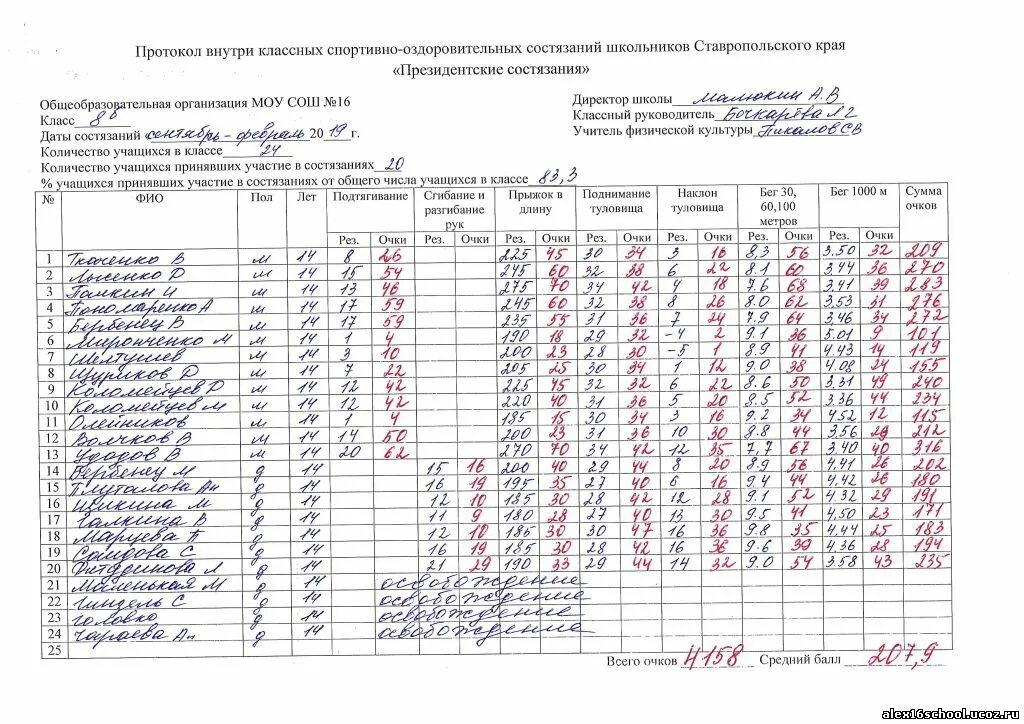 Протокол внутри классных спортивно-оздоровительных состязаний школьников Ставропольского края
«Президентские состязания»
Общеобразовательная организация МОУ СОШ №16
Директор школы Малюкин А.В
Класс 8 в
Классный руководитель Бочкарёва Л Г
Даты состязаний сентябрь - февраль 2019 г.
Учитель физической культуры Пикалов С В
Количество учащихся в классе 24
Количество учащихся принявших участие в состязаниях 20
% учащихся принявших участие в состязаниях от общего числа учащихся в классе 83,3
№ ФИО Пол Лет Подтягивание Сгибание и разгибание рук Прыжок в длину Поднимание туловища Наклон туловища Бег 30, 60,100 метров Бег 1000 м Сумма очков
Рез. Очки Рез. Очки Рез. Очки Рез. Очки Рез. Очки Рез. Очки Рез. Очки
1 Ткаченко В м 14 8 26 225 45 30 34 3 16 8,3 56 3.50 32 209
2 Лысенко D м 14 15 54 245 60 32 38 6 22 8.1 60 3.44 36 270
3 Папкин И м 14 13 46 275 70 34 42 4 18 7.6 68 3.41 39 283
4 Пономаренко А м 14 17 59 245 60 32 38 8 26 8.0 62 3.53 31 276
5 Бербенец В м 14 17 59 235 55 31 36 7 24 7.9 64 3.46 34 272
6 Миронченко М м 14 1 4 190 18 29 32 -4 2 9.1 36 5.01 9 101
7 Шелтушев м 14 3 10 200 23 28 30 -5 1 8.9 41 4.43 14 119
8 Щуриков D м 14 7 22 205 25 30 34 1 12 9.0 38 4.08 24 155
9 Коломейцев D м 14 12 42 225 45 32 32 6 22 8.6 50 3.31 49 240
10 Коломейцев м м 14 12 42 220 40 31 36 5 20 8.5 52 3.36 44 234
11 Олейников м 14 1 4 185 15 30 34 3 16 9.2 34 4.52 12 115
12 Волчков В м 14 14 50 200 23 31 36 10 30 8.8 44 3.56 29 212
13 Удодов В м 14 20 62 270 70 34 42 12 35 7,7 67 3.40 40 316
14 Бербенец М д 14 15 16 200 40 29 44 8 20 8.9 56 4.41 26 202
15 Плуталова Ан д 14 16 19 195 35 27 40 6 16 9.4 44 4.42 26 180
16 Щукина М д 14 12 10 185 30 28 42 12 28 9.1 52 4.32 29 191
17 Галкина В д 14 11 9 180 28 27 40 13 30 9.5 41 4,50 23 171
18 Марцева П д 14 12 10 185 30 30 47 16 36 9.8 35 4.44 25 183
19 Саидова С д 14 16 19 185 30 28 42 16 36 9.6 39 4.36 28 194
20 л д 14 21 29 190 33 29 44 14 32 9.0 54 3.58 43 235
21 Маленькая М д 14 освобождение
22 Гинзель С д 14 освобождение
23 Головко д 14 освобождение
24 Чараева Ан д 14 освобождение
25
Всего очков 4158 Средний балл 207,9
alex16school.ucoz.ru